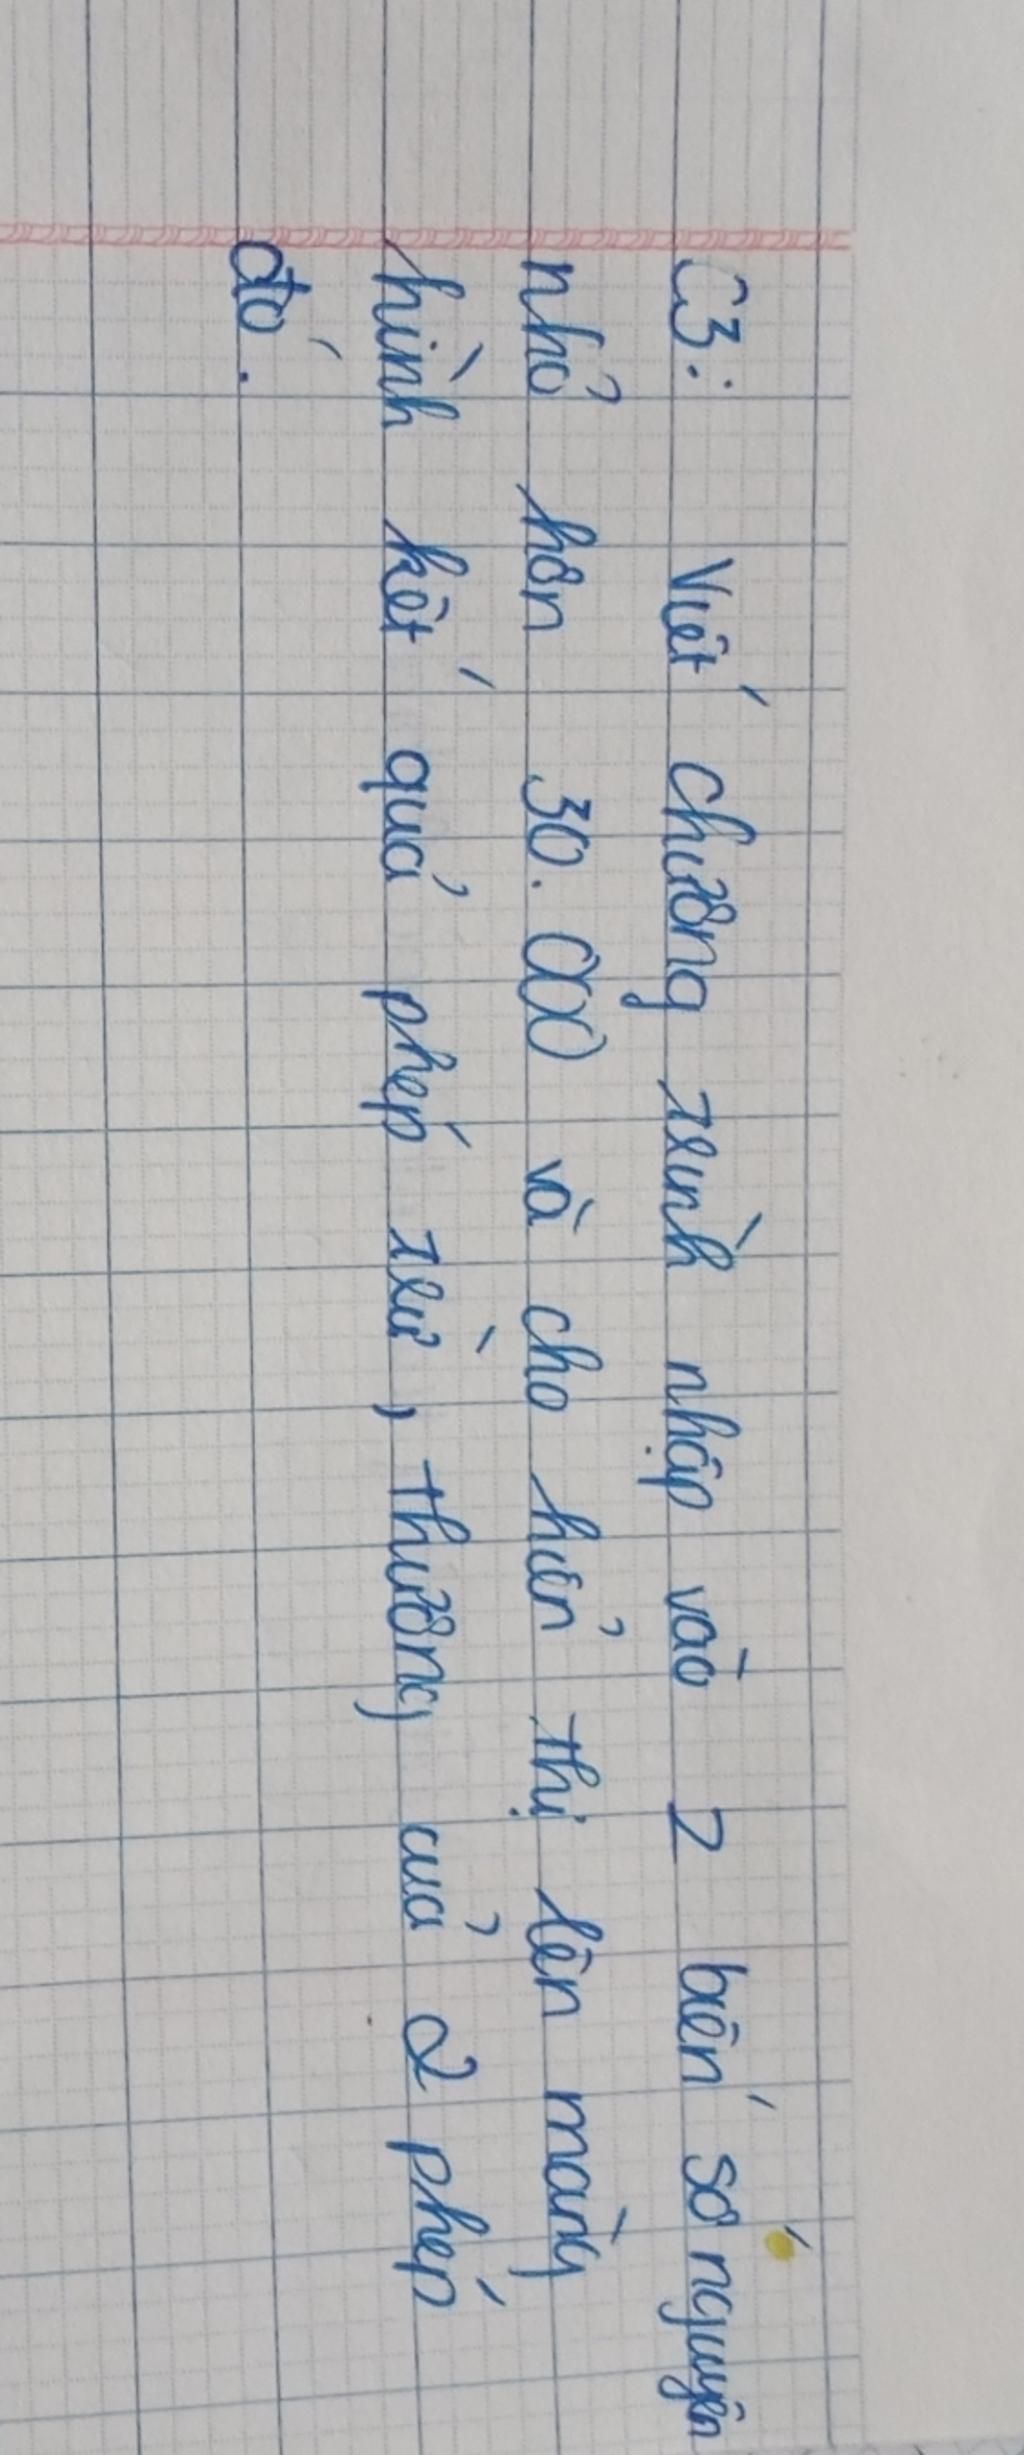 C3: Viết chương trình nhập vào 2 biến số nguyên
nhỏ hơn 30.000 và cho hiển thị lên màng
hình kết quả phép trừ, thương của 2 phép
đó.